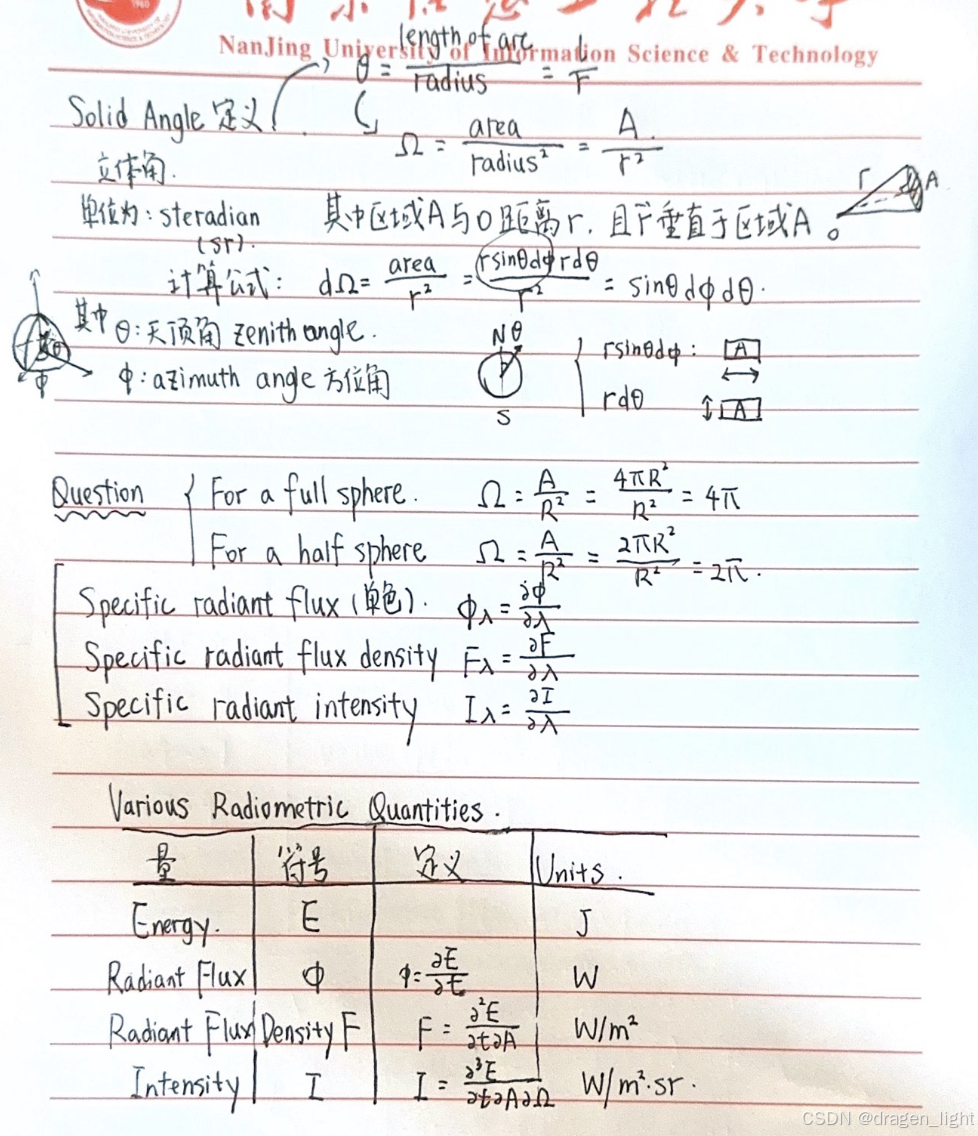 1960
南京信息工程大学
NanJing University of Information Science & Technology
θ = length of arc / radius = l / r
Solid Angle 定义
Ω = area / radius² = A / r²
立体角.
r A
单位为: steradian 其中区域A与O距离r, 且r垂直于区域A。
(sr).
计算公式: dΩ = area / r² = rsinθdϕ rdθ / r² = sinθ dϕ dθ.
其中 θ:天顶角 zenith angle. N θ { rsinθdϕ: A
θ
ϕ
ϕ: azimuth angle 方位角 S rdθ A
Question { For a full sphere. Ω = A / R² = 4πR² / R² = 4π
For a half sphere Ω = A / R² = 2πR² / R² = 2π.
Specific radiant flux (单色). ϕλ = ∂ϕ / ∂λ
Specific radiant flux density Fλ = ∂F / ∂λ
Specific radiant intensity Iλ = ∂I / ∂λ
Various Radiometric Quantities.
量 符号 定义 Units.
Energy. E J
Radiant Flux ϕ ϕ = ∂E / ∂t W
Radiant Flux Density F F = ∂²E / ∂t∂A W/m²
Intensity I I = ∂³E / ∂t∂A∂Ω W/m²·sr.
CSDN @dragen_light